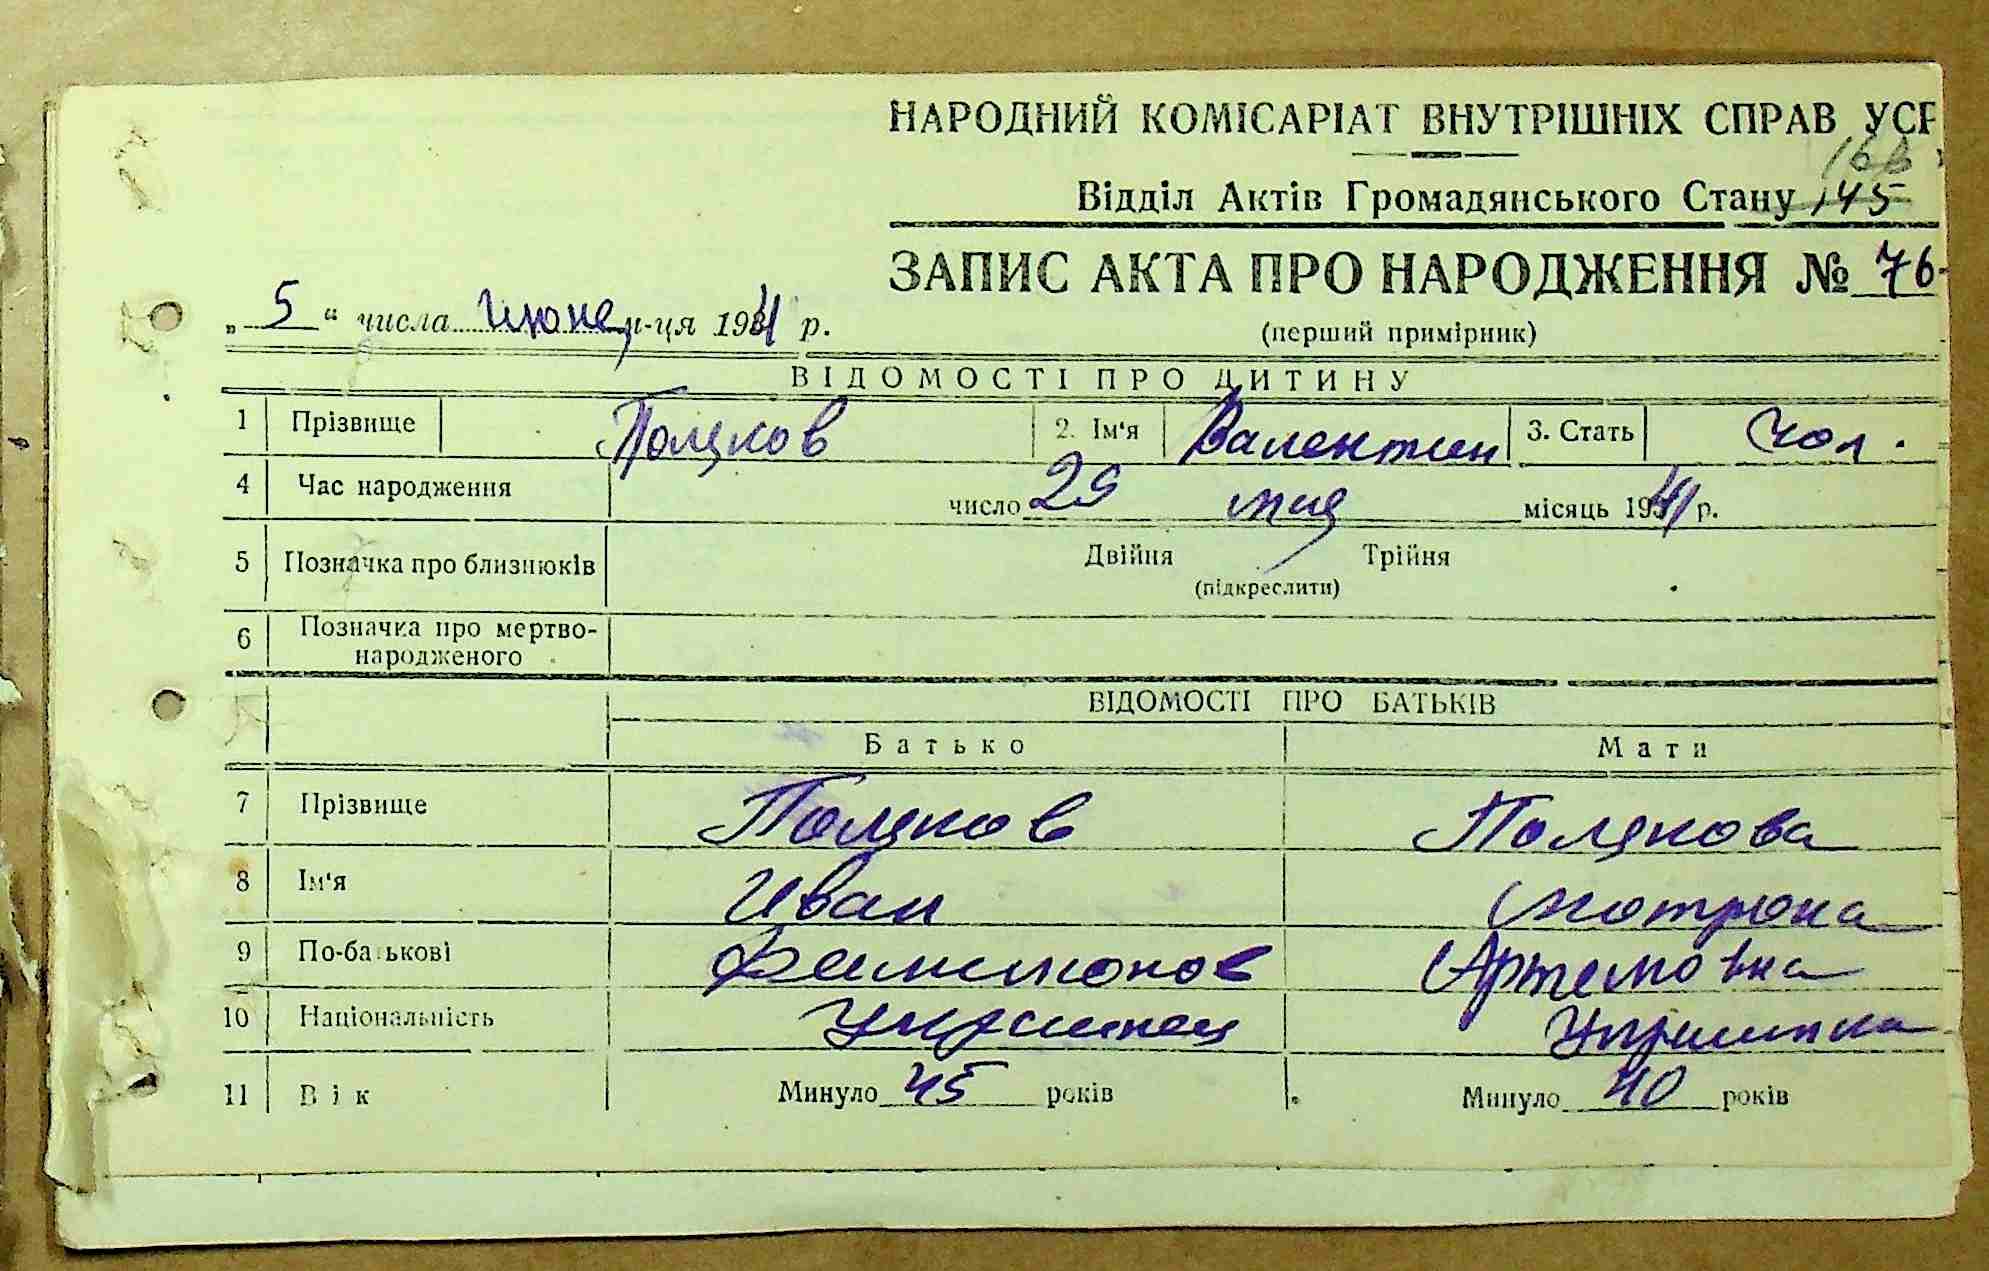 НАРОДНИЙ КОМІСАРІАТ ВНУТРІШНІХ СПРАВ УСР
Відділ Актів Громадянського Стану 145
ЗАПИС АКТА ПРО НАРОДЖЕННЯ № 76
(перший примірник)
„ 5 “ числа июня м-ця 1941 р.
ВІДОМОСТІ ПРО ДИТИНУ
1 Прізвище Поляков 2. Ім'я Валентин 3. Стать чол.
4 Час народження число 29 мая місяць 1941 р.
5 Позначка про близнюків Двійня Трійня
(підкреслити)
6 Позначка про мертво-
народженого
ВІДОМОСТІ ПРО БАТЬКІВ
Батько Мати
7 Прізвище Поляков Полякова
8 Ім'я Иван Мотрона
9 По-батькові Филимонов Артемовна
10 Національність Украинец Украинка
11 Вік Минуло 45 років Минуло 40 років